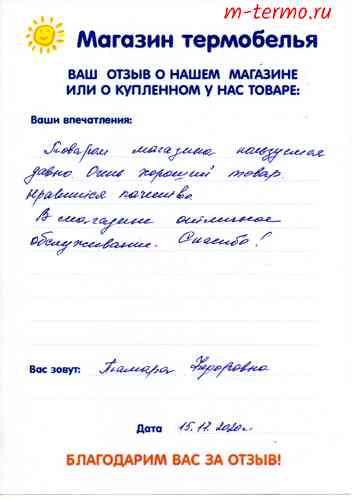 m-termo.ru
Магазин термобелья
ВАШ ОТЗЫВ О НАШЕМ МАГАЗИНЕ
ИЛИ О КУПЛЕННОМ У НАС ТОВАРЕ:
Ваши впечатления:
Товаром магазина пользуемся
давно. Очень хороший товар.
Нравится качество.
В магазине отличное
обслуживание. Спасибо!
Вас зовут: Тамара Федоровна
Дата 15.12.2020г.
БЛАГОДАРИМ ВАС ЗА ОТЗЫВ!